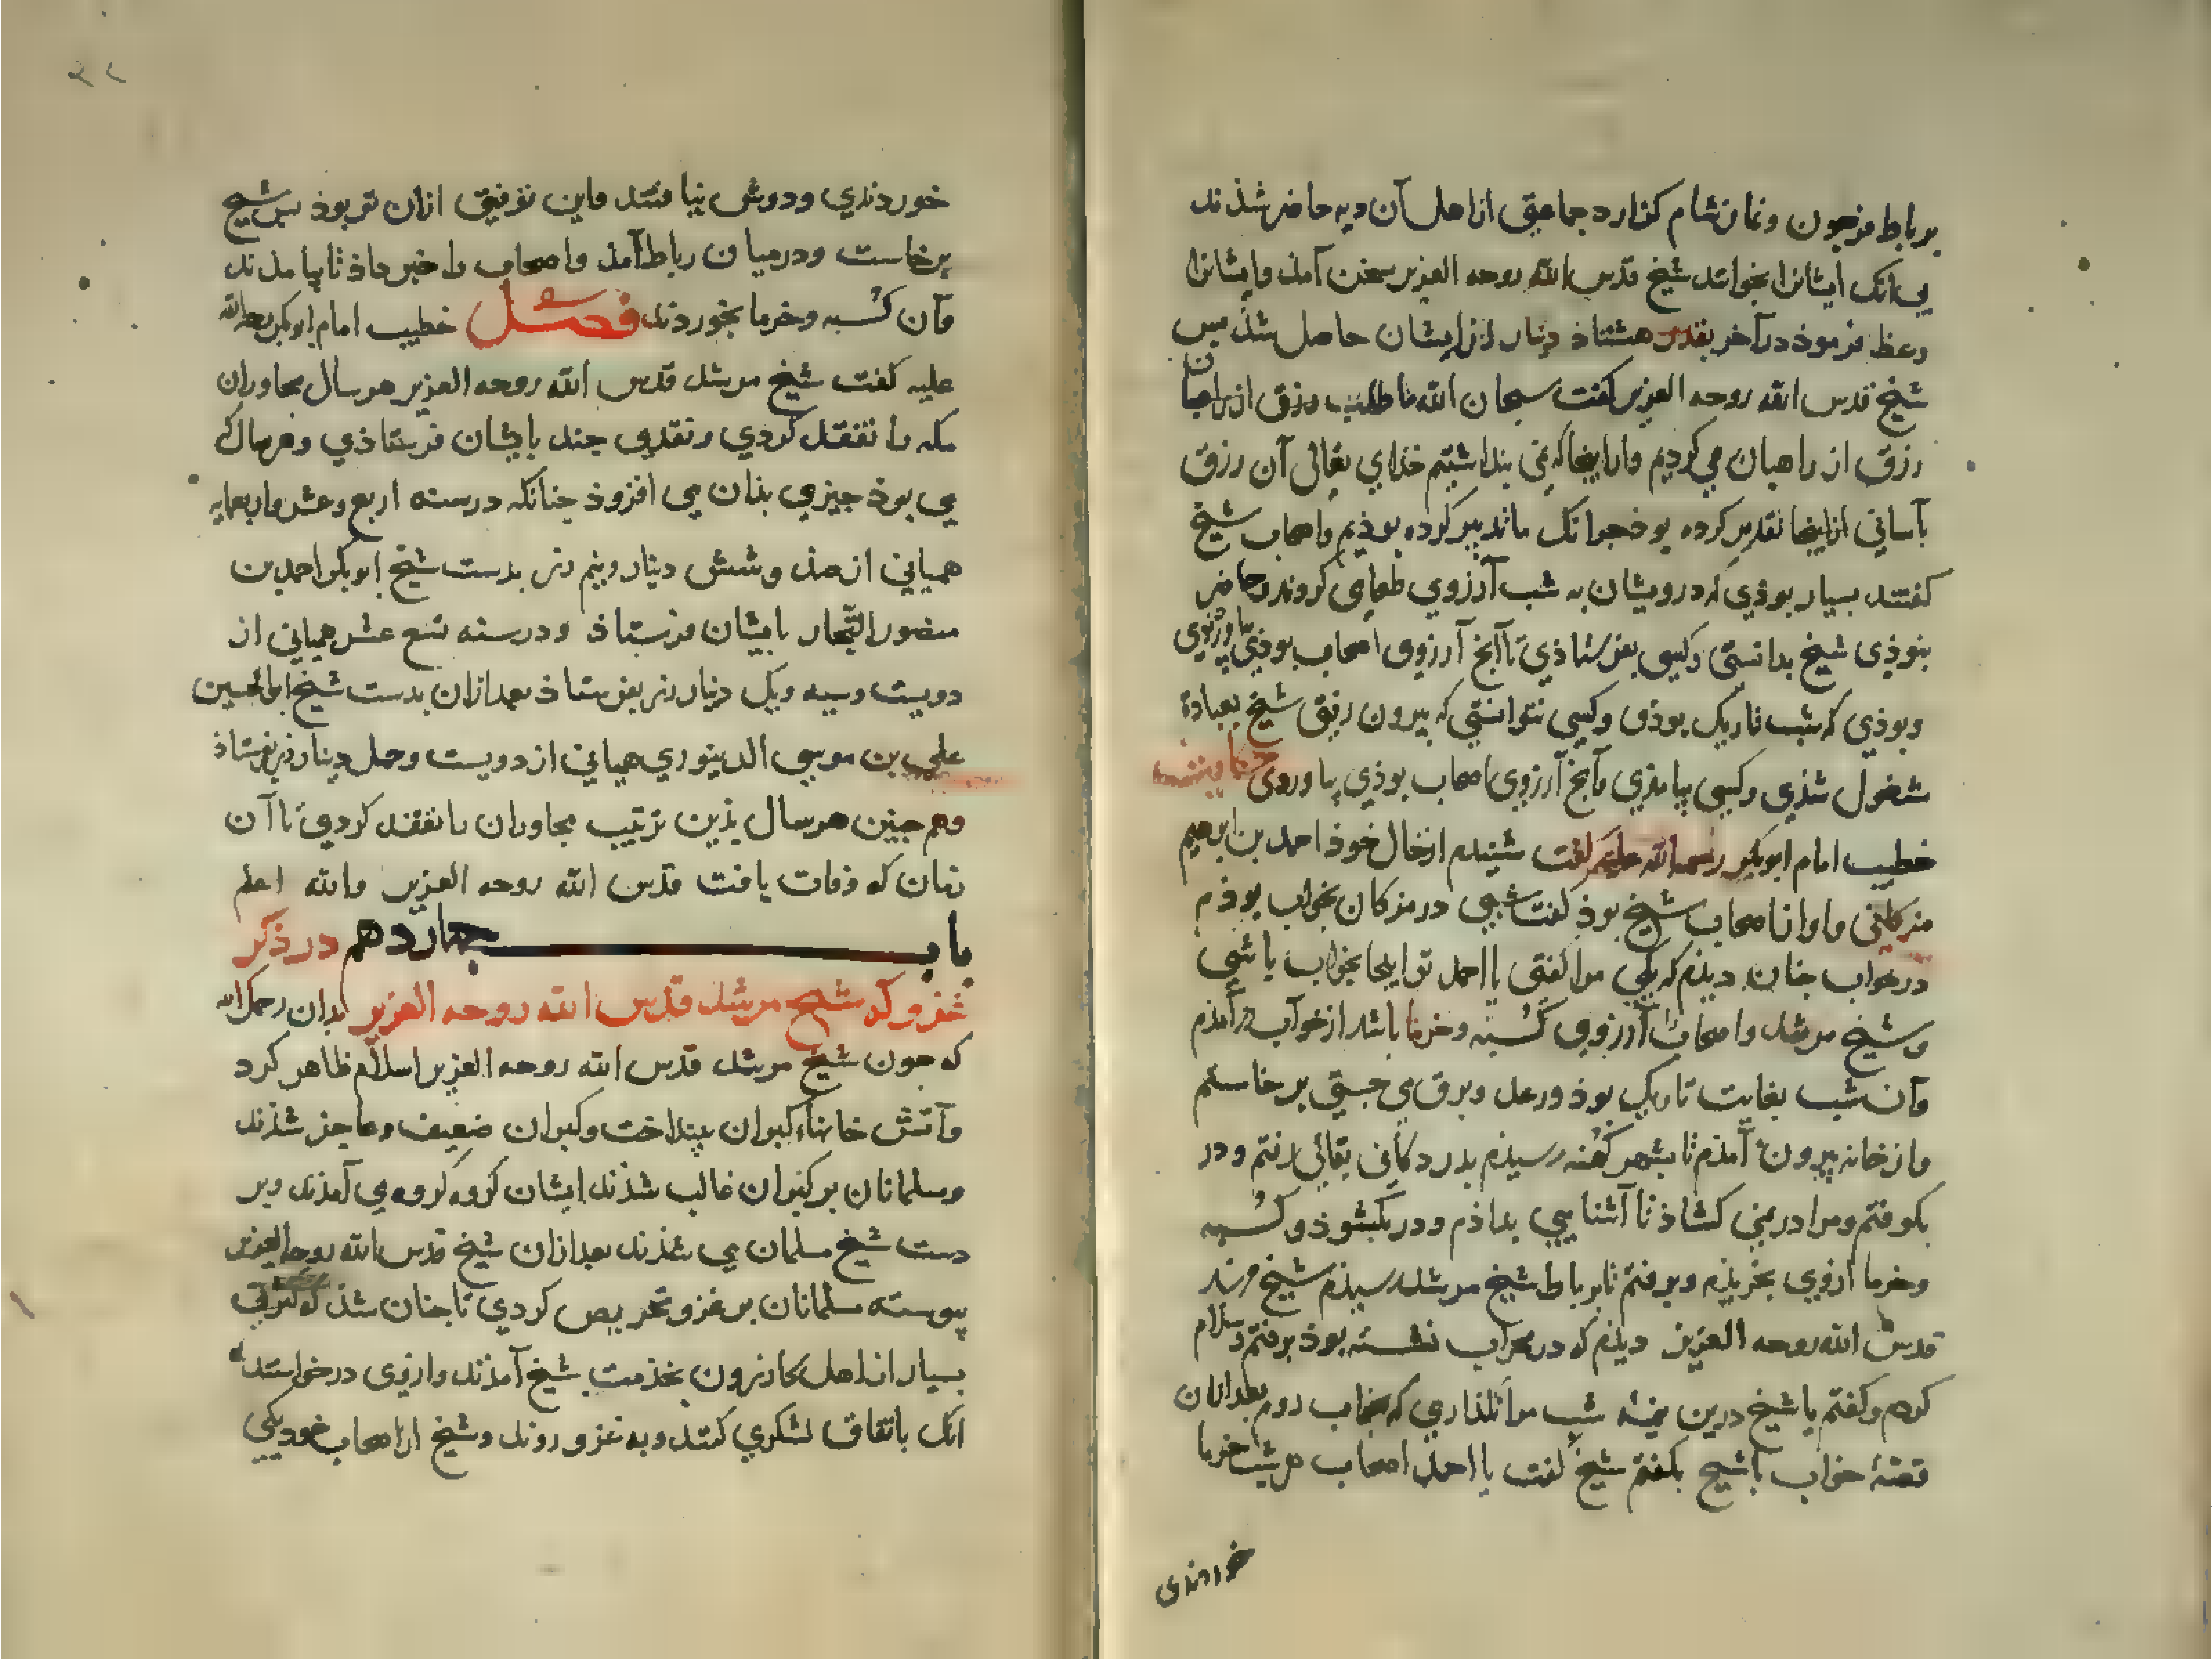 بر باط فرجون و نماز شام کزارد جماعتی از اهل آن دیه حاضر شذند
بی انک ایشانرا بخوانند شیخ قدس الله روحه العزیز بسخن آمذ و ایشانرا
وعظ فرموذ در آخر بقدر هشتاذ دینار زر از ایشان حاصل شذ بس
شیخ قدس الله روحه العزیز کفت سبحان الله ما طلب رزق از راهبان
رزق از راهبان می کردیم و ما را اینجا که نمی بنداشتیم خذای تعالی آن رزق
بآسانی از اینجا تقدیر کرده بوذ جوانک ما تدبیر کرده بوذیم و اصحاب شیخ
کفتند بسیار بوذی که درویشان به شب آرزوی طعامی کردند و حاضر
نبوذی شیخ بدانستی و کسی بفرستاذی تا آنج آرزوی اصحاب بوذی بیاوردی
و بوذی که شب تاریک بوذی و کسی نتوانستی که بیرون رفتی شیخ بعبادة
مشغول شذی و کسی بیامذی و آنج آرزوی اصحاب بوذی بیاوردی حکایت
خطیب امام ابوبکر رحمة الله علیه کفت شنیدم از خال خوذ احمد بن ابرهیم
و او از اصحاب شیخ بوذ کفت شبی در مزکان بخواب بوذم
در خواب جنان دیذم که یکی مرا کفتی یا احمد تو اینجا بخواب باشی
و شیخ مرشد و اصحاب را آرزوی کسبه و خرما باشد از خواب در آمذم
و آن شب بغایت تاریک بوذ و رعد و برق می جستی بر خاستم
و از خانه بیرون آمذم تا بشهر کهنه رسیذم بدر دکانی بقالی رفتم و در
بکوفتم و مرا در نمی کشاذ تا آشنایی بداذم و در بکشوذ و کسبه
و خرما ازوی بخریذم و برفتم تا بر باط شیخ مرشد رسیذم شیخ مرشد
قدس الله روحه العزیز دیذم که در محراب نشسته بوذ برفتم و سلام
کردم و کفتم یا شیخ درین نیمه شب مرا نکذاری که بخواب روم بعد ازان
قصۀ خواب با شیخ بکفتم شیخ کفت یا احمذ اصحاب هر شب خرما
خوردندی
خوردندی و دوش نیافتند و این توفیق ازان تو بوذ بس شیخ
برخاست و در میان رباط آمذ و اصحاب را خبر داذ تا بیامذند
و آن کسبه و خرما بخوردند فصل خطیب امام ابوبکر رحمة الله
علیه کفت شیخ مرشد قدس الله روحه العزیز هر سال مجاوران
مکه را تفقد کردی و نقدی جند بایشان فرستاذی و هر سال که
می بوذ جیزی بذان می افزوذ جنانکه در سنه اربع و عشر و اربعمایه
همیانی از صذ و شش دینار و نیم زر بدست شیخ ابوبکر احمد بن
منصور النجار بایشان فرستاذ و در سنه تسع عشر همیانی از
دویست و سیه و یک دینار زر بفرستاذ بعد ازان بدست شیخ ابوالحسین
علی بن موسی الدینوری همیانی از دویست و جهل دینار زر بفرستاذ
و هم جنین هر سال بذین ترتیب مجاوران را تفقد کردی تا آن
زمان که وفات یافت قدس الله روحه العزیز و الله اعلم
باب جهاردهم در ذکر
غزو کردن شیخ مرشد قدس الله روحه العزیز بدان رحمک الله
که جون شیخ مرشد قدس الله روحه العزیز اسلام ظاهر کرد
و آتش خانهاء کبران بینداخت و کبران ضعیف و عاجز شذند
و مسلمانان بر کبران غالب شذند ایشان کروه کروه می آمذند و بر
دست شیخ مسلمان می شذند بعد ازان شیخ قدس الله روحه العزیز
بیوسته مسلمانان بر غزو تحریص کردی تا جنان شذ که
بسیار از اهل کازرون بخذمت شیخ آمذند و ازوی درخواستند
انک باتفاق لشکری کنند و به غزو روند و شیخ از اصحاب خود یکی